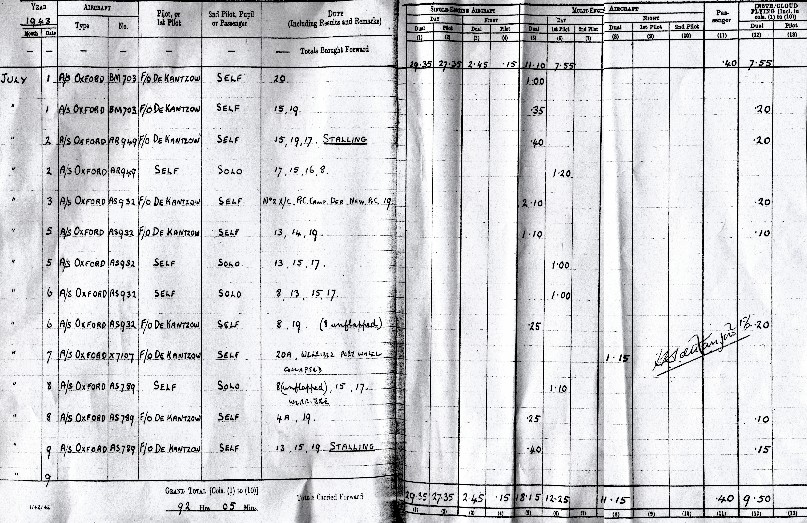 YEAR AIRCRAFT PILOT, OR 1ST PILOT 2ND PILOT, PUPIL OR PASSENGER DUTY (INCLUDING RESULTS AND REMARKS)
1943 Type No.
MONTH DATE
— — — — — — — TOTALS BROUGHT FORWARD
SINGLE-ENGINE AIRCRAFT AIRCRAFT PAS- SENGER INSTR/CLOUD FLYING [Incl. in cols. (1) to (10)]
DAY NIGHT DAY NIGHT
DUAL PILOT DUAL PILOT DUAL 1ST PILOT 2ND PILOT DUAL 1ST PILOT 2ND PILOT DUAL PILOT
(1) (2) (3) (4) (5) (6) (7) (8) (9) (10) (11) (12) (13)
29.35 27.35 2.45 .15 11.10 7.55 .40 7.55
JULY 1 A/S OXFORD BM703 F/O DE KANTZOW SELF 20. 1.00
" 1 A/S OXFORD BM703 F/O DE KANTZOW SELF 15,19. .35 .20
" 2 A/S OXFORD AR949 F/O DE KANTZOW SELF 15,19,17. STALLING .40 .20
" 2 A/S OXFORD AR949 SELF SOLO 17,15,16,8. 1.20
" 3 A/S OXFORD AS932 F/O DE KANTZOW SELF 2.10 .20
" 5 A/S OXFORD AS932 F/O DE KANTZOW SELF 13,14,19. 1.10 .10
" 5 A/S OXFORD AS932 SELF SOLO 13,15,17. 1.00
" 6 A/S OXFORD AS932 SELF SOLO 8,13,15,17. 1.00
" 6 A/S OXFORD AS932 F/O DE KANTZOW SELF 8,19. (8 unflapped) .25 .20
" 7 A/S OXFORD X7107 F/O DE KANTZOW SELF 20A, PORT WHEEL 1.15
COLLAPSED
" 8 A/S OXFORD AS789 SELF SOLO 8(unflapped), 15, 17. 1.10
" 8 A/S OXFORD AS789 F/O DE KANTZOW SELF 4A, 19. .25 .10
" 9 A/S OXFORD AS789 F/O DE KANTZOW SELF 13,15,19 STALLING .40 .15
" 9
GRAND TOTAL [Cols. (1) to (10)]
92 Hrs 05 Mins.
TOTALS CARRIED FORWARD
29.35 27.35 2.45 .15 18.15 12.25 1.15 .40 9.50
(1) (2) (3) (4) (5) (6) (7) (8) (9) (10) (11) (12) (13)